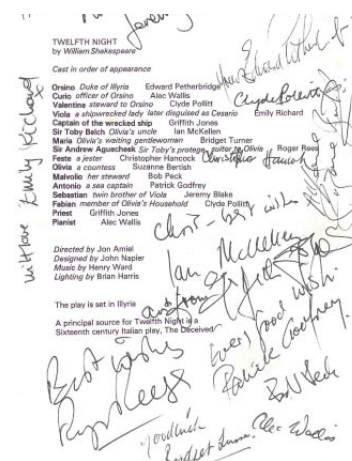 Jeremy
TWELFTH NIGHT
by William Shakespeare
Cast in order of appearance
Orsino Duke of Illyria Edward Petherbridge
Curio officer of Orsino Alec Wallis
Valentine steward to Orsino Clyde Pollitt
Viola a shipwrecked lady later disguised as Cesario Emily Richard
Captain of the wrecked ship Griffith Jones
Sir Toby Belch Olivia's uncle Ian McKellen
Maria Olivia's waiting gentlewoman Bridget Turner
Sir Andrew Aguecheek Sir Toby's protege, suitor to Olivia Roger Rees
Feste a jester Christopher Hancock
Olivia a countess Suzanne Bertish
Malvolio her steward Bob Peck
Antonio a sea captain Patrick Godfrey
Sebastian twin brother of Viola Jeremy Blake
Fabian member of Olivia's Household Clyde Pollitt
Priest Griffith Jones
Pianist Alec Wallis
Directed by Jon Amiel
Designed by John Napier
Music by Henry Ward
Lighting by Brian Harris
The play is set in Illyria
A principal source for Twelfth Night is a
Sixteenth century Italian play, The Deceived
with love Emily Richard
Edward Petherbridge
Clyde Pollitt
Christopher Hancock
best wishes
Ian McKellen
and from
Every good wish.
Patrick Godfrey.
Bob Peck
Best wishes
Roger Rees
Good luck
Bridget Turner.
Alec Wallis